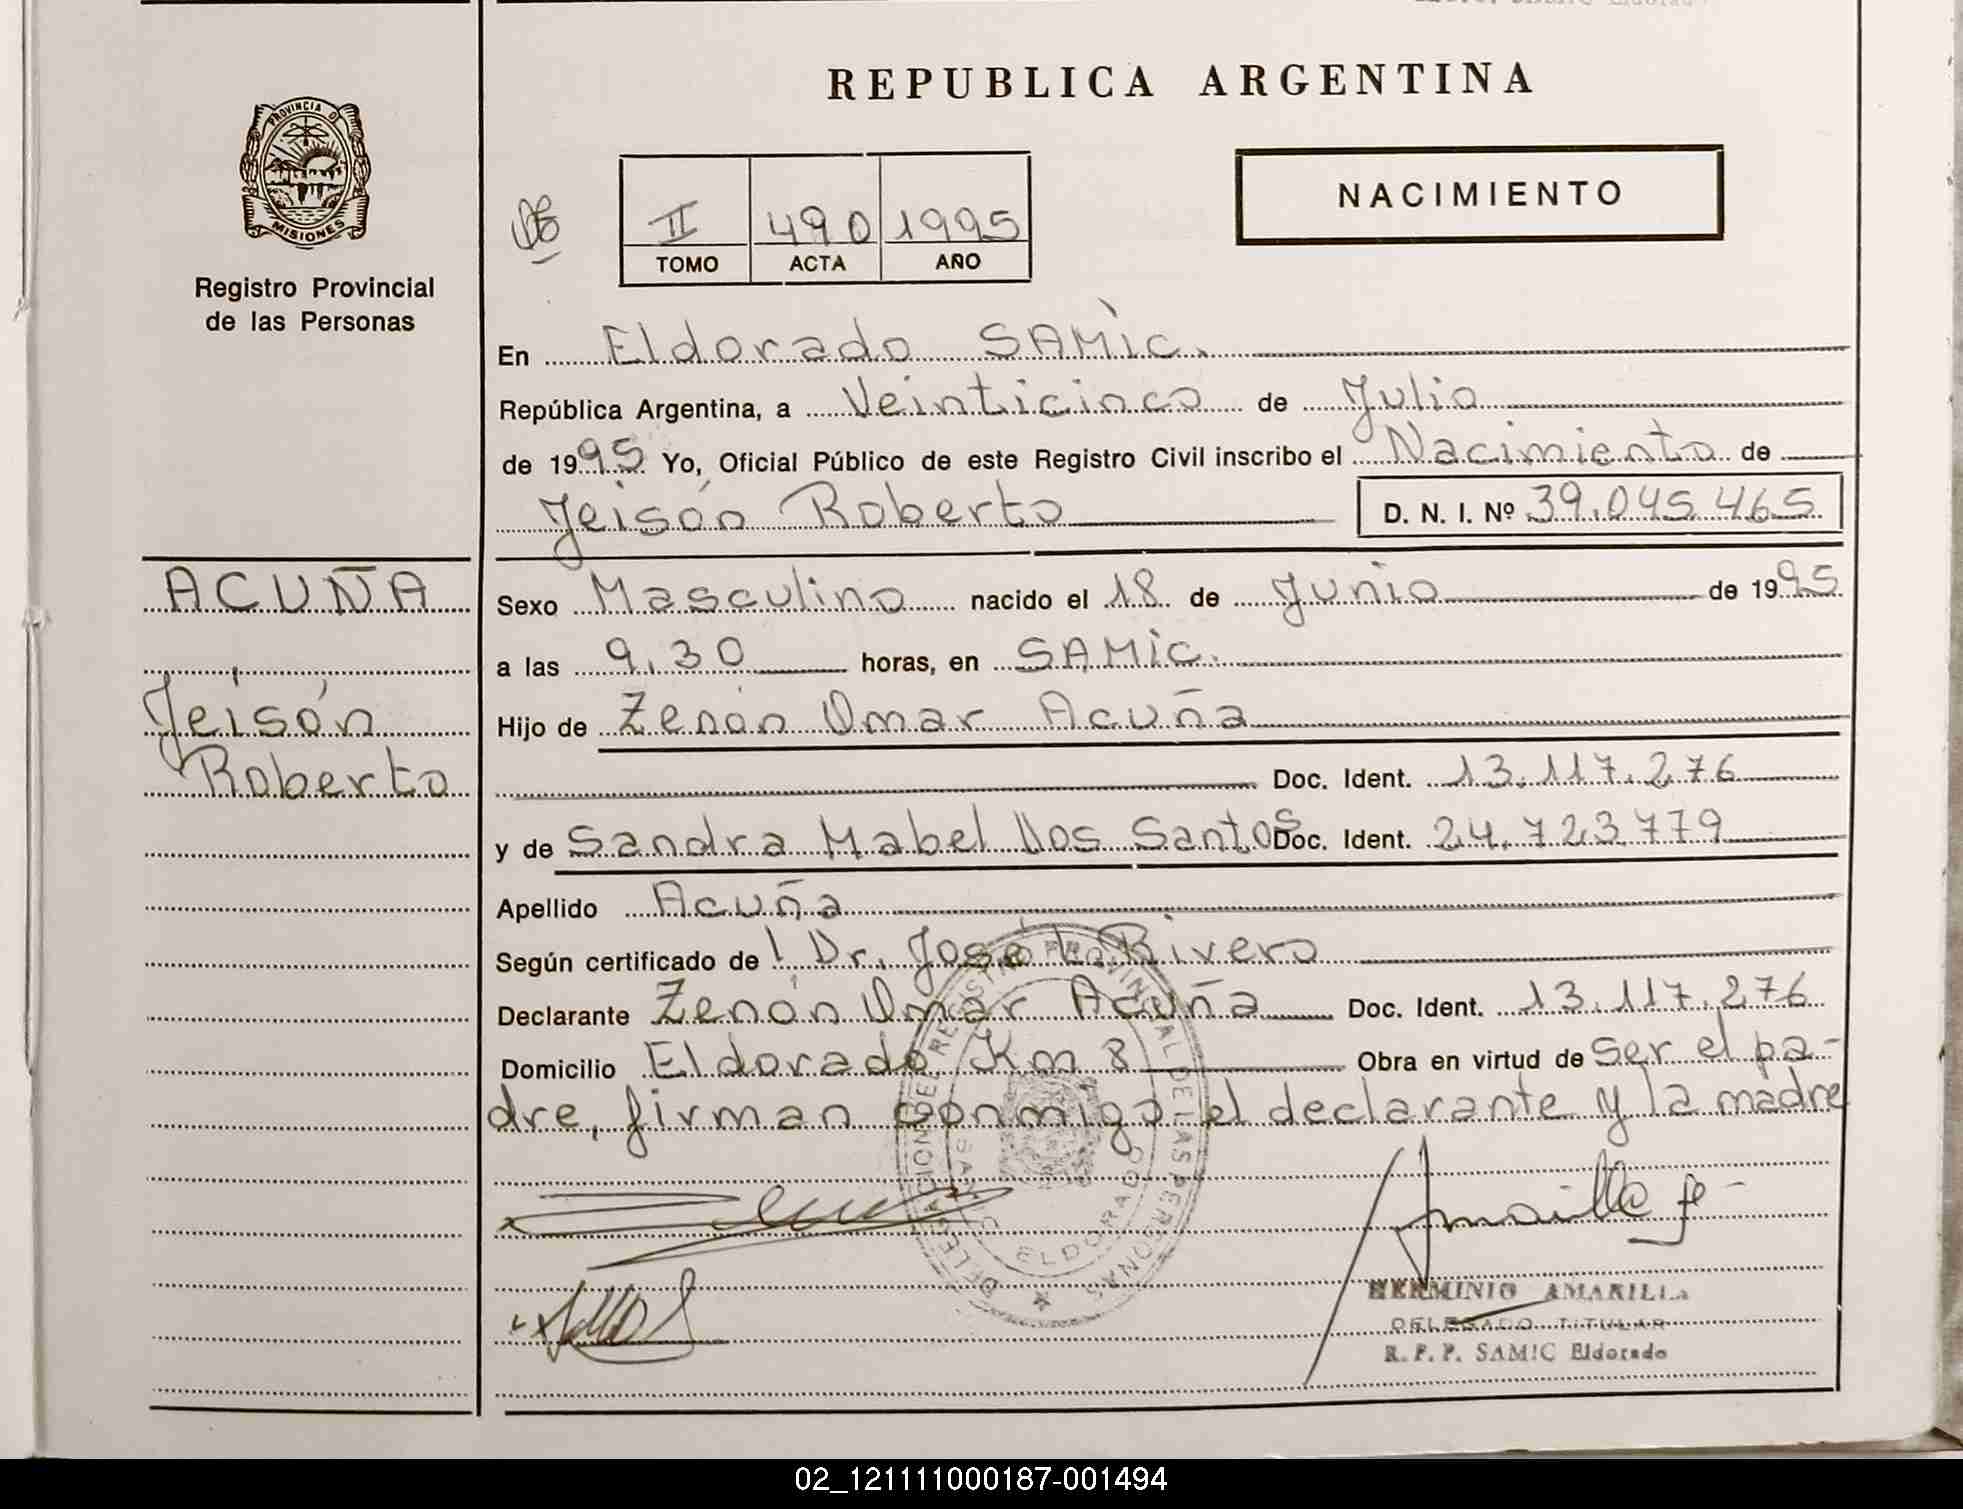 REPUBLICA ARGENTINA
PROVINCIA D
MISIONES
Registro Provincial
de las Personas
II 490 1995
TOMO ACTA AÑO
NACIMIENTO
En Eldorado SAMic.
República Argentina, a Veinticinco de Julio
de 1995 Yo, Oficial Público de este Registro Civil inscribo el Nacimiento de
Jeisón Roberto D. N. I. Nº 39.045.465
ACUÑA
Jeisón
Roberto
Sexo Masculino nacido el 18 de Junio de 1995
a las 9.30 horas, en SAMic.
Hijo de Zenón Omar Acuña
Doc. Ident. 13.117.276
y de Sandra Mabel Dos Santos Doc. Ident. 24.723.779
Apellido Acuña
Según certificado de l Dr. José L. Rivero
Declarante Zenón Omar Acuña Doc. Ident. 13.117.276
Domicilio Eldorado, Km 8 Obra en virtud de ser el pa-
dre, firman conmigo el declarante y la madre
DELEGACION DE REGISTRO PROVINCIAL DE LAS PERSONAS
ELDORADO
HERMINIO AMARILLA
DELEGADO TITULAR
R. P. P. SAMIC Eldorado
02_121111000187-001494